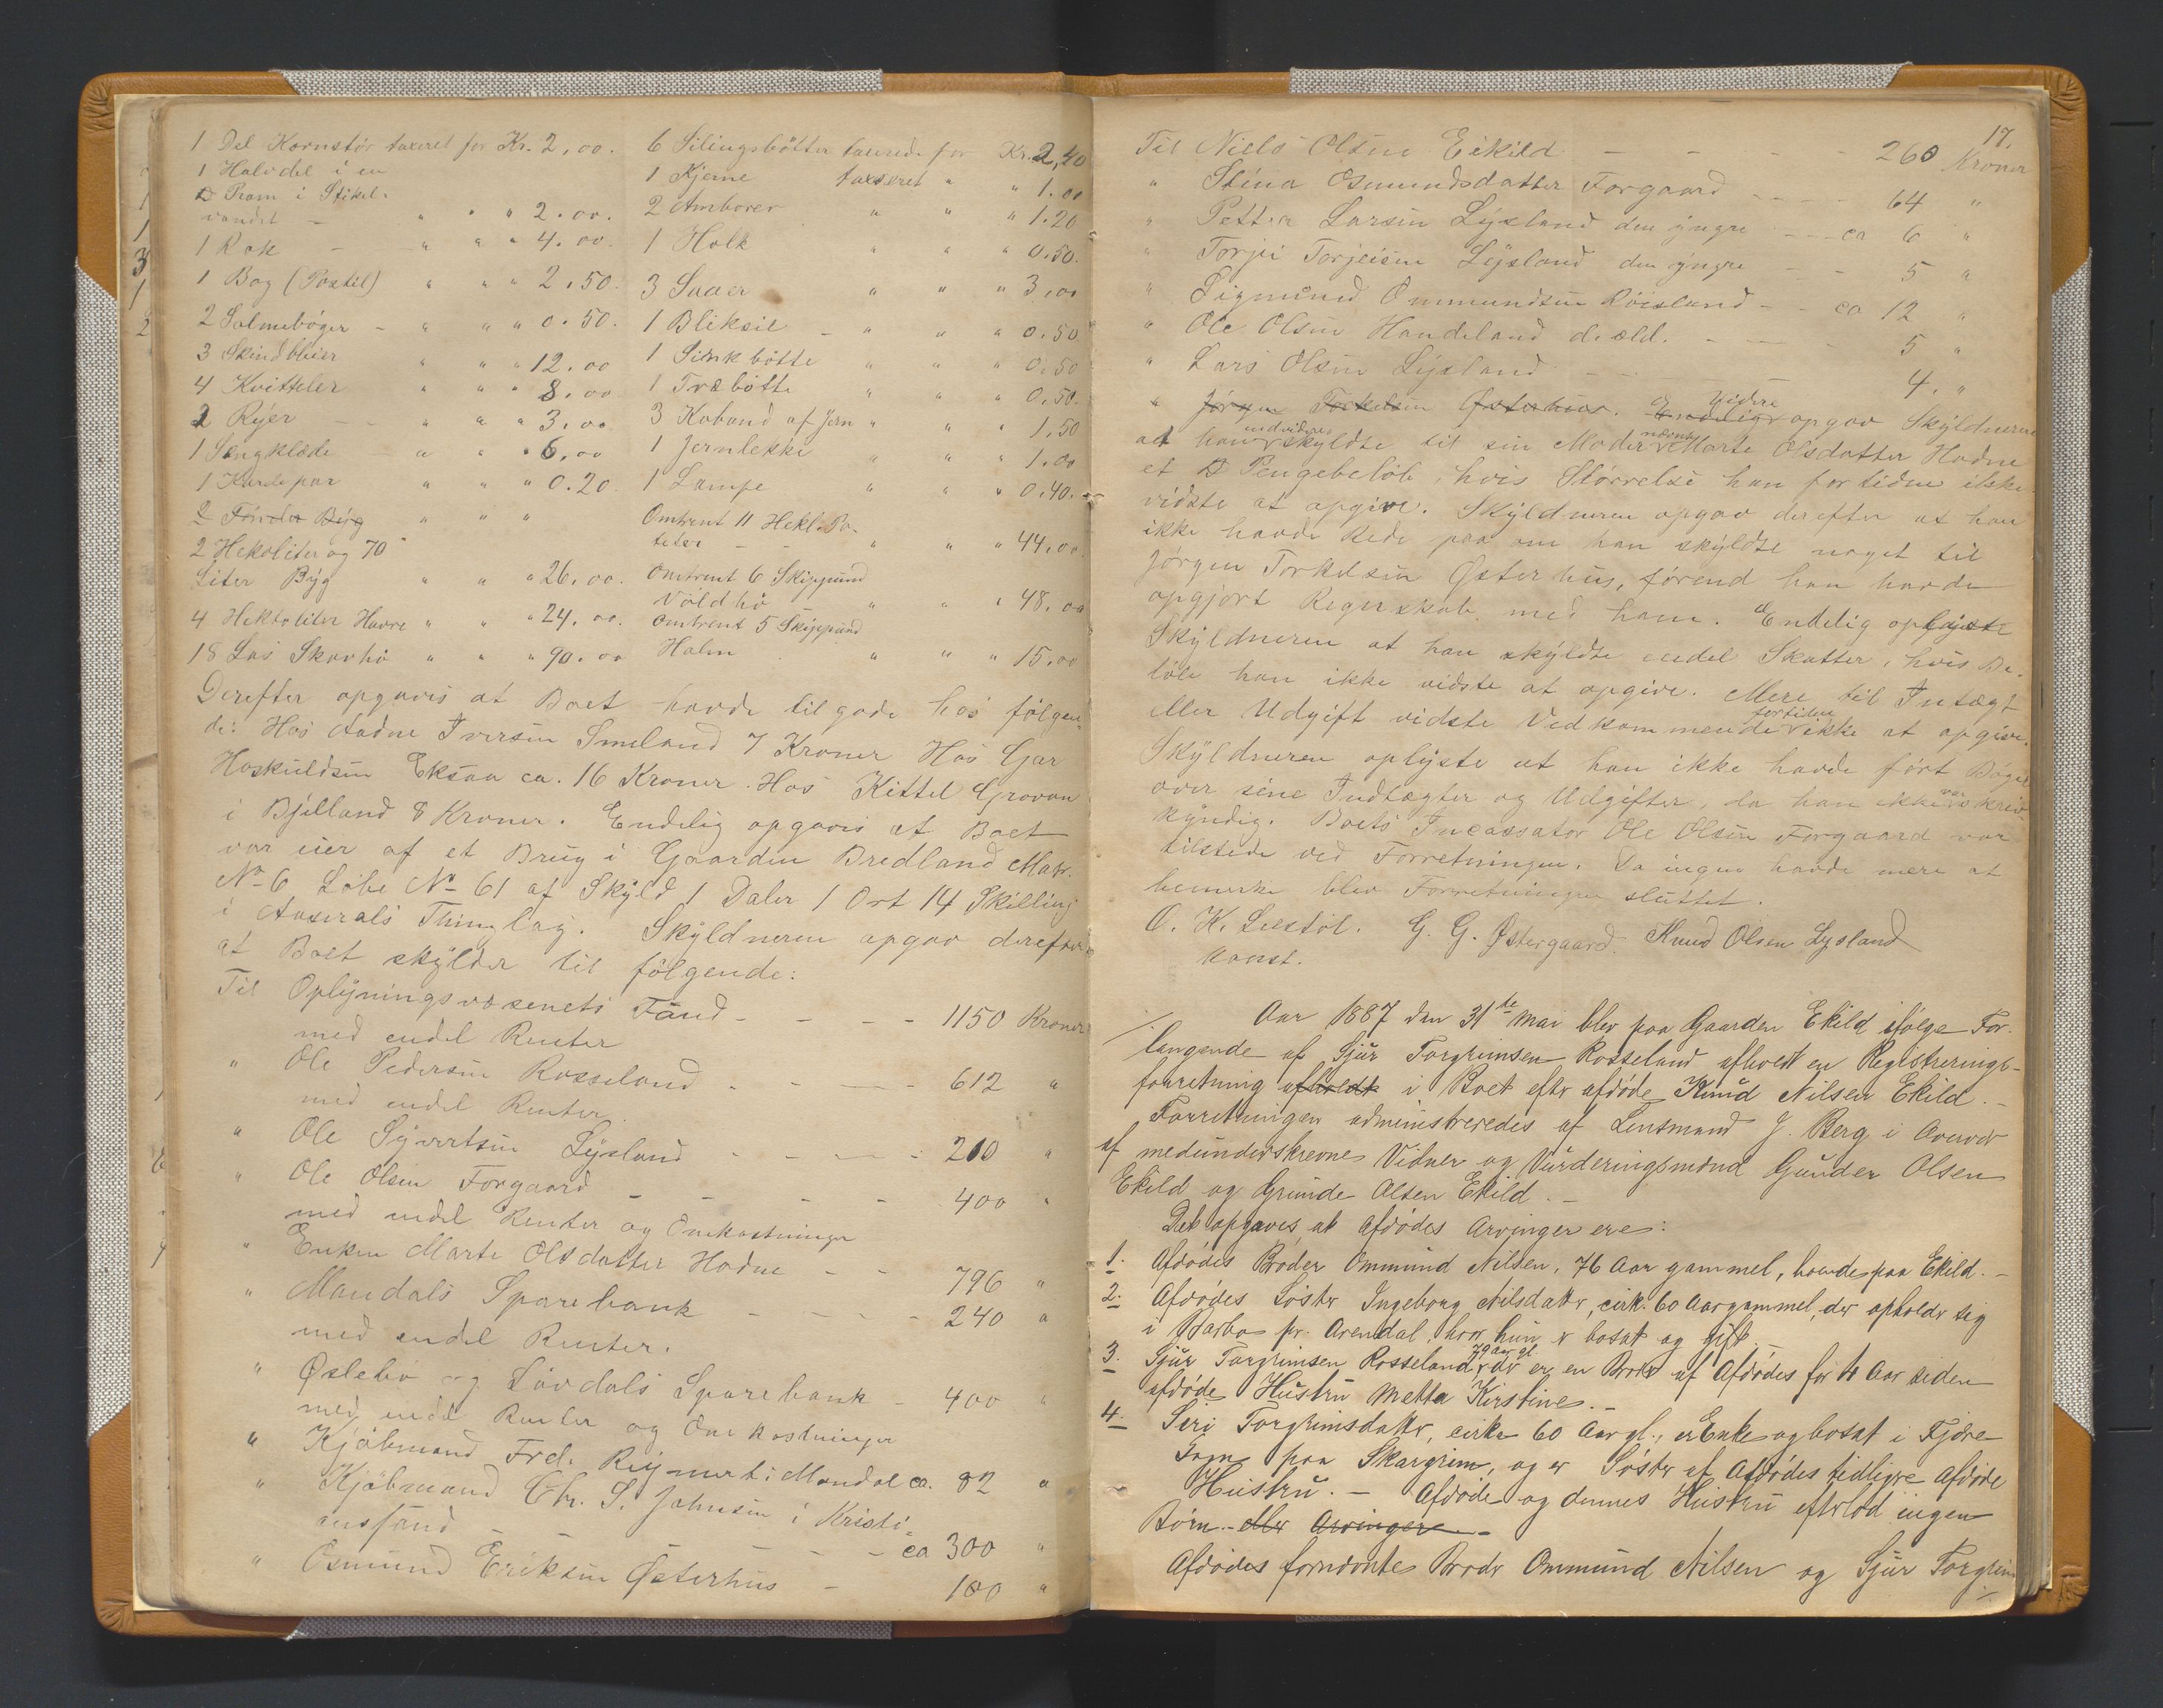 1 Del Kornstör taxeret for Kr. 2,00.
1 Halvdel i en
Pram i Stikel-
vandet - " " " 2.00.
1 Rok - " " " 4.00.
1 Bog (Postil) " " " 2.50.
2 Salmebøger - " " " 0.50.
3 Skindbleier " " " 12.00
4 Kvitteler " " " 8.00
2 Ryer - - " " " 3.00
1 Sengklæde " " " 6,00
1 Kardepar " " " 0.20
2 Tønder Byg " " "
2 Hekoliter og 70
Liter Byg " " " 26,00.
4 Hektoliter Havre " " " 24,00.
18 Las Skovhö " " " 90.00
6 Silingsbötter taxerede for Kr. 2,40
1 Kjerne taxseret " " 1.00
2 Amborer " " " 1.20
1 Holk " " " 0.50.
3 Saaer " " " 3,00
1 Bliksil - " " " 0.50
1 Sinkbötte " " " 0.50
1 Træbötte " " " 0.50.
3 Koband af Jern " " " 1,50
1 Jernlekke " " " 1.00
1 Lampe " " " 0.40.
Omtrent 11 Hekl. Po-
teter - - " " " 44,00
Omtrent 6 Skippund
Voldhö " " " 48.00
omtrent 5 Skippund
Halm " " " 15,00
Derefter opgaves at Boet havde tilgode hos følgen-
de: Hos Aadne Iversen Smeland 7 Kroner Hos Gjar
Hoskuldsen Eksaa ca. 16 Kroner. Hos Kittel Grovan
i Bjelland 8 Kroner. Endelig opgaves at Boet
var eier af et Brug i Gaarden Bredland Matr.
No 6 Löbe No 61 af Skyld 1 Daler 1 Ort 14 Skilling
i Aaserals Thinglag. Skyldneren opgav derefter
at Boet skylder til följgende:
Til Oplysningsvæsenets Fond - - - - 1150 Kroner
med endel Renter
" Ole Pedersen Rosseland - - - - 612 "
med endel Renter
" Ole Syvertsen Lysland - - - - 210 "
" Ole Olsen Forgaard - - - - 400 "
med endel Renter og Omkostninger
" Enken Marte Olsdatter Hodne - - 796 "
" Mandals Sparebank - - - - 240 "
med endel Renter.
" Øslebö og Løvdals Sparebank - 400 "
med endel Renter og Omkostninger
" Kjöbmand Fred. Reymert i Mandal ca. 82 "
" Kjöbmand Chr. S. Johnsen i Kristi-
ansand - - - - - ca 300 "
" Osmund Eriksen Østerhus - 100 "
17.
Til Niels Olsen Eikild - - - 260 Kroner
" Stina Osmundsdatter Forgaard - - - - 64 "
" Petter Larsen Lysland den yngre - - - ca 6 "
" Torjei Torjeisen Lysland den yngre - - 5 "
" Sigmund Ommundsen Röisland - - ca 12 "
" Ole Olsen Handeland d. æld. - - - 5 "
" Lars Olsen Lysland - - - 4. "
" Jörgen Torkelsen Østerhus. Endelig og Videre opgav Skyldneren
at han endvidere skyldte til sin Moder nævnte Marte Olsdatter Hodne
et Pengebelöb, hvis Störrelse han fortiden ikke
vidste at opgive. Skyldneren opgav derefter at han
ikke havde Rede paa om han skyldte noget til
Jörgen Torkelsen Østerhus, förend han havde
opgjort Regnskab med ham. Endelig oplyste
Skyldneren at han skyldte endel Skatter, hvis Be-
löb han ikke vidste at opgive. Mere til Intægt
eller Udgift vidste Vedkommende fortiden ikke at opgive.
Skyldneren oplyste at han ikke havde fört Böger
over sine Indtægter og Udgifter, da han ikke var skriv
kyndig. Boets Incassator Ole Olsen Forgaard var
tilstede ved Forretningen. Da ingen havde mere at
bemerke blev Forretningen sluttet.
O. K. Lilestöl. G. G. Østergaard. Knud Olsen Lysland
konst.
Aar 1887 den 31te Mai blev paa Gaarden Ekild ifølge For-
langende af Sjur Torgrimsen Rosseland afholdt en Registrerings-
forretning afholdt i Boet efter afdöde Knud Nilsen Ekild. -
Forretningen administreredes af Lensmand J. Berg i Overvær
af medunderskrevne Vidner og Vurderingsmænd Gunder Olsen
Ekild og Grunde Olsen Ekild. -
Det opgaves, at Afdödes Arvinger ere:
1. Afdödes Broder Ommund Nilsen, 76 Aar gammel, boendes paa Ekild. -
2. Afdödes Söster Ingeborg Nilsdatter, cirk. 60 Aar gammel, der opholder sig
i Barbo pr. Arendal, hvor hun er bosat og gift.
3. Sjur Torgrimsen Rosseland, 79 Aar gl. der er en Broder af Afdödes for 4 Aar siden
afdöde Hustru Metta Kirstine. -
4. Seri Torgrimsdatter, cirka 60 Aar gl., er Enke og bosat i Fjære
Sogn paa Skargrim, og er Söster af Afdödes tidligere afdöde
Hustru. - Afdöde og dennes Hustru efterlod ingen
Börn - eller Arvinger -
Afdödes fornævnte Broder Ommund Nilsen og Sjur Torgrim